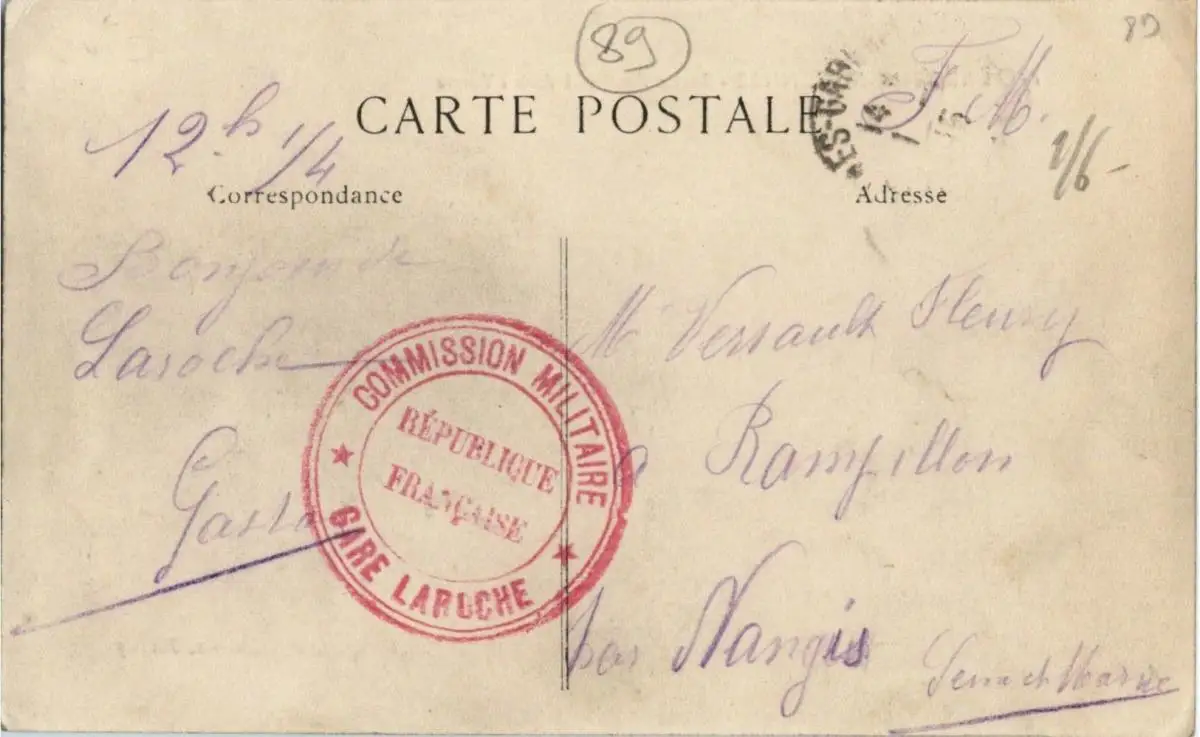 89
89
CARTE POSTALE
F. M.
ES-GARE
14
1
15
1/6-
12h 1/4
Correspondance
Adresse
Bonjour de
Laroche
COMMISSION MILITAIRE
RÉPUBLIQUE
FRANÇAISE
GARE LAROCHE
Mr Versault Fleury
a Rampillon
par Nangis
Seine et Marne